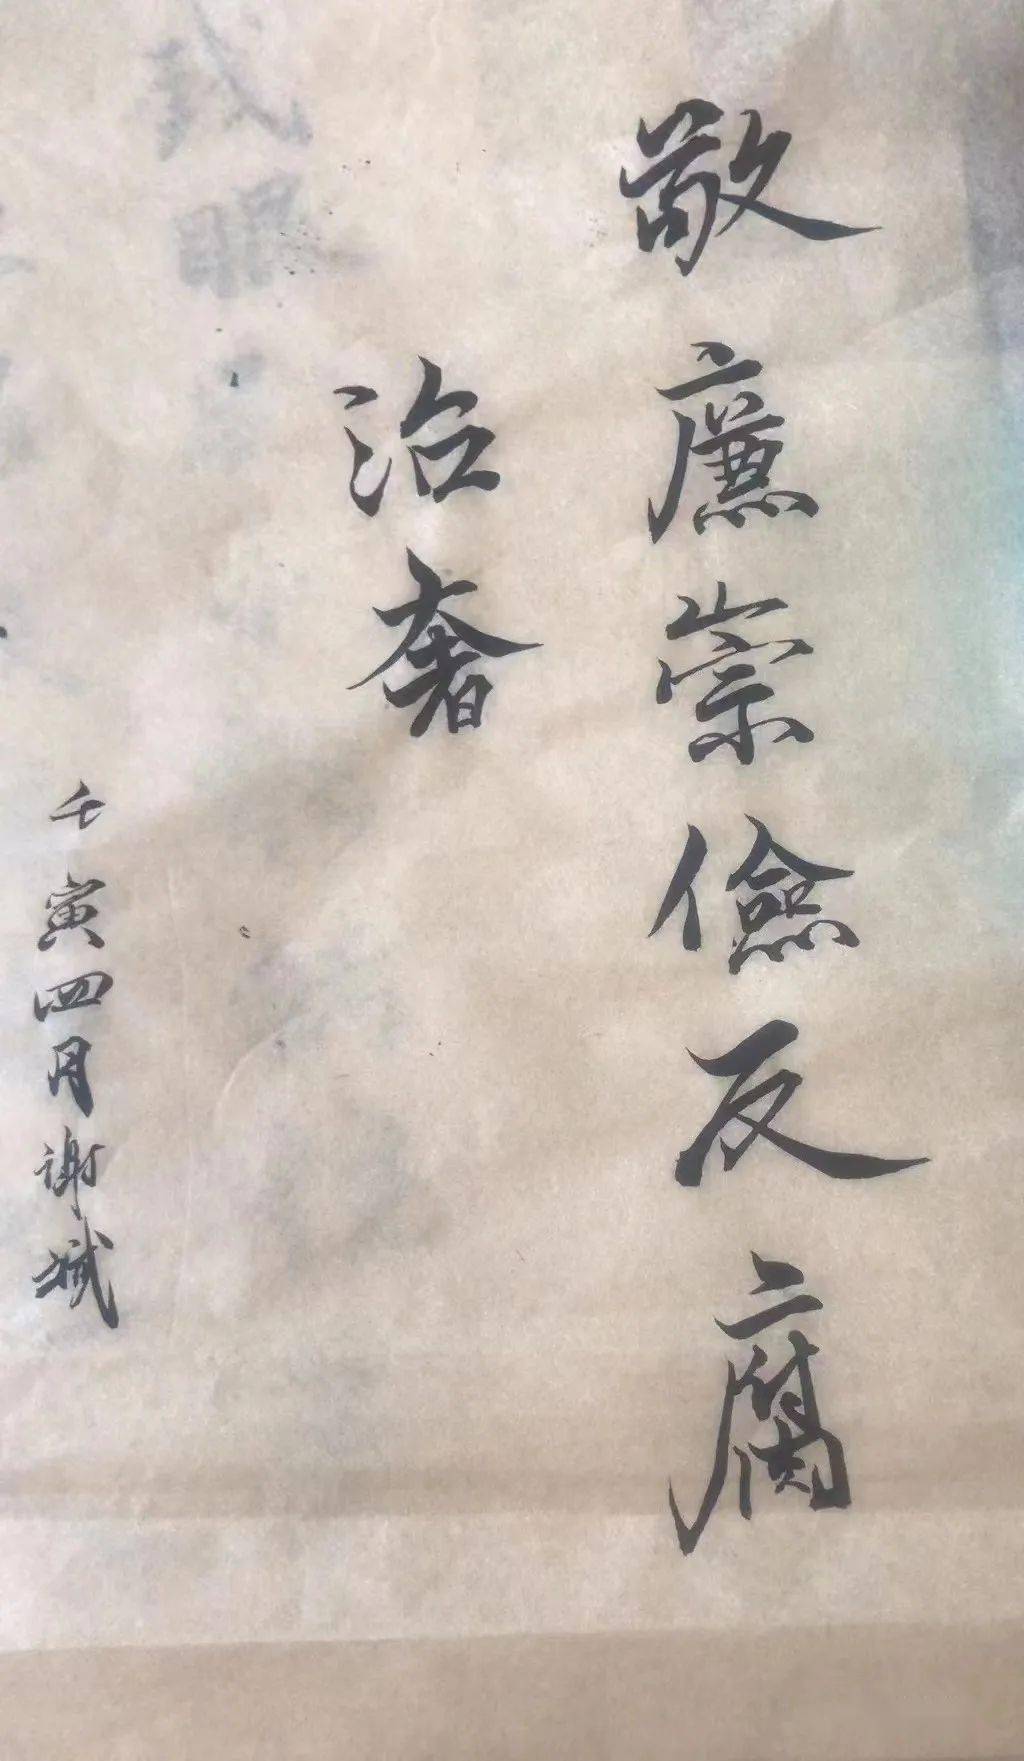 敬廉崇儉反腐
治奢
壬寅四月谢斌